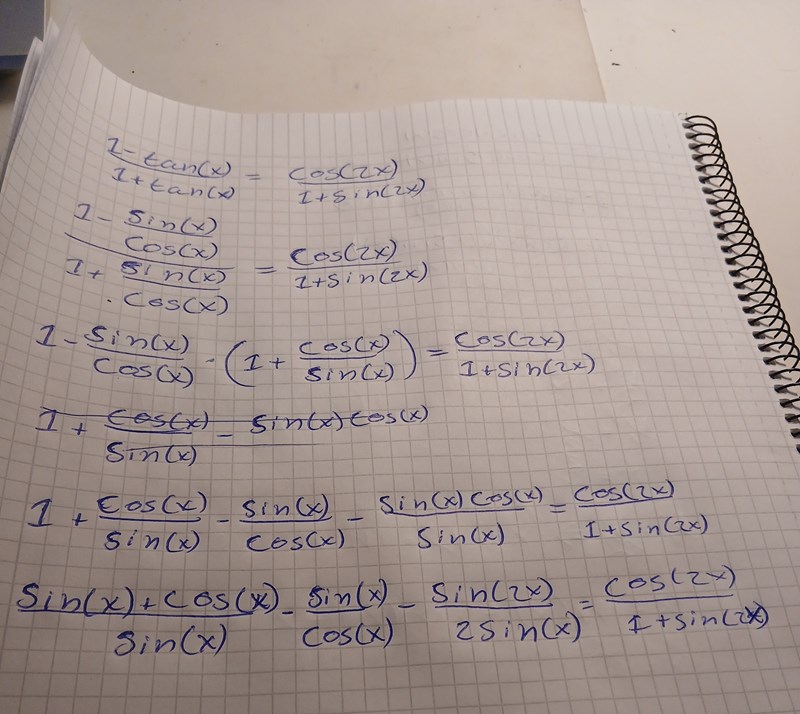 (1-tan(x))/(1+tan(x)) = cos(2x)/(1+sin(2x))
(1-sin(x)/cos(x))/(1+sin(x)/cos(x)) = cos(2x)/(1+sin(2x))
1-sin(x)/cos(x)·(1+cos(x)/sin(x)) = cos(2x)/(1+sin(2x))
1+cos(x)/sin(x)-sin(x)cos(x)
1+cos(x)/sin(x)-sin(x)/cos(x)-sin(x)cos(x)/sin(x) = cos(2x)/(1+sin(2x))
(sin(x)+cos(x))/sin(x)-sin(x)/cos(x)-sin(2x)/2sin(x) = cos(2x)/(1+sin(2x))